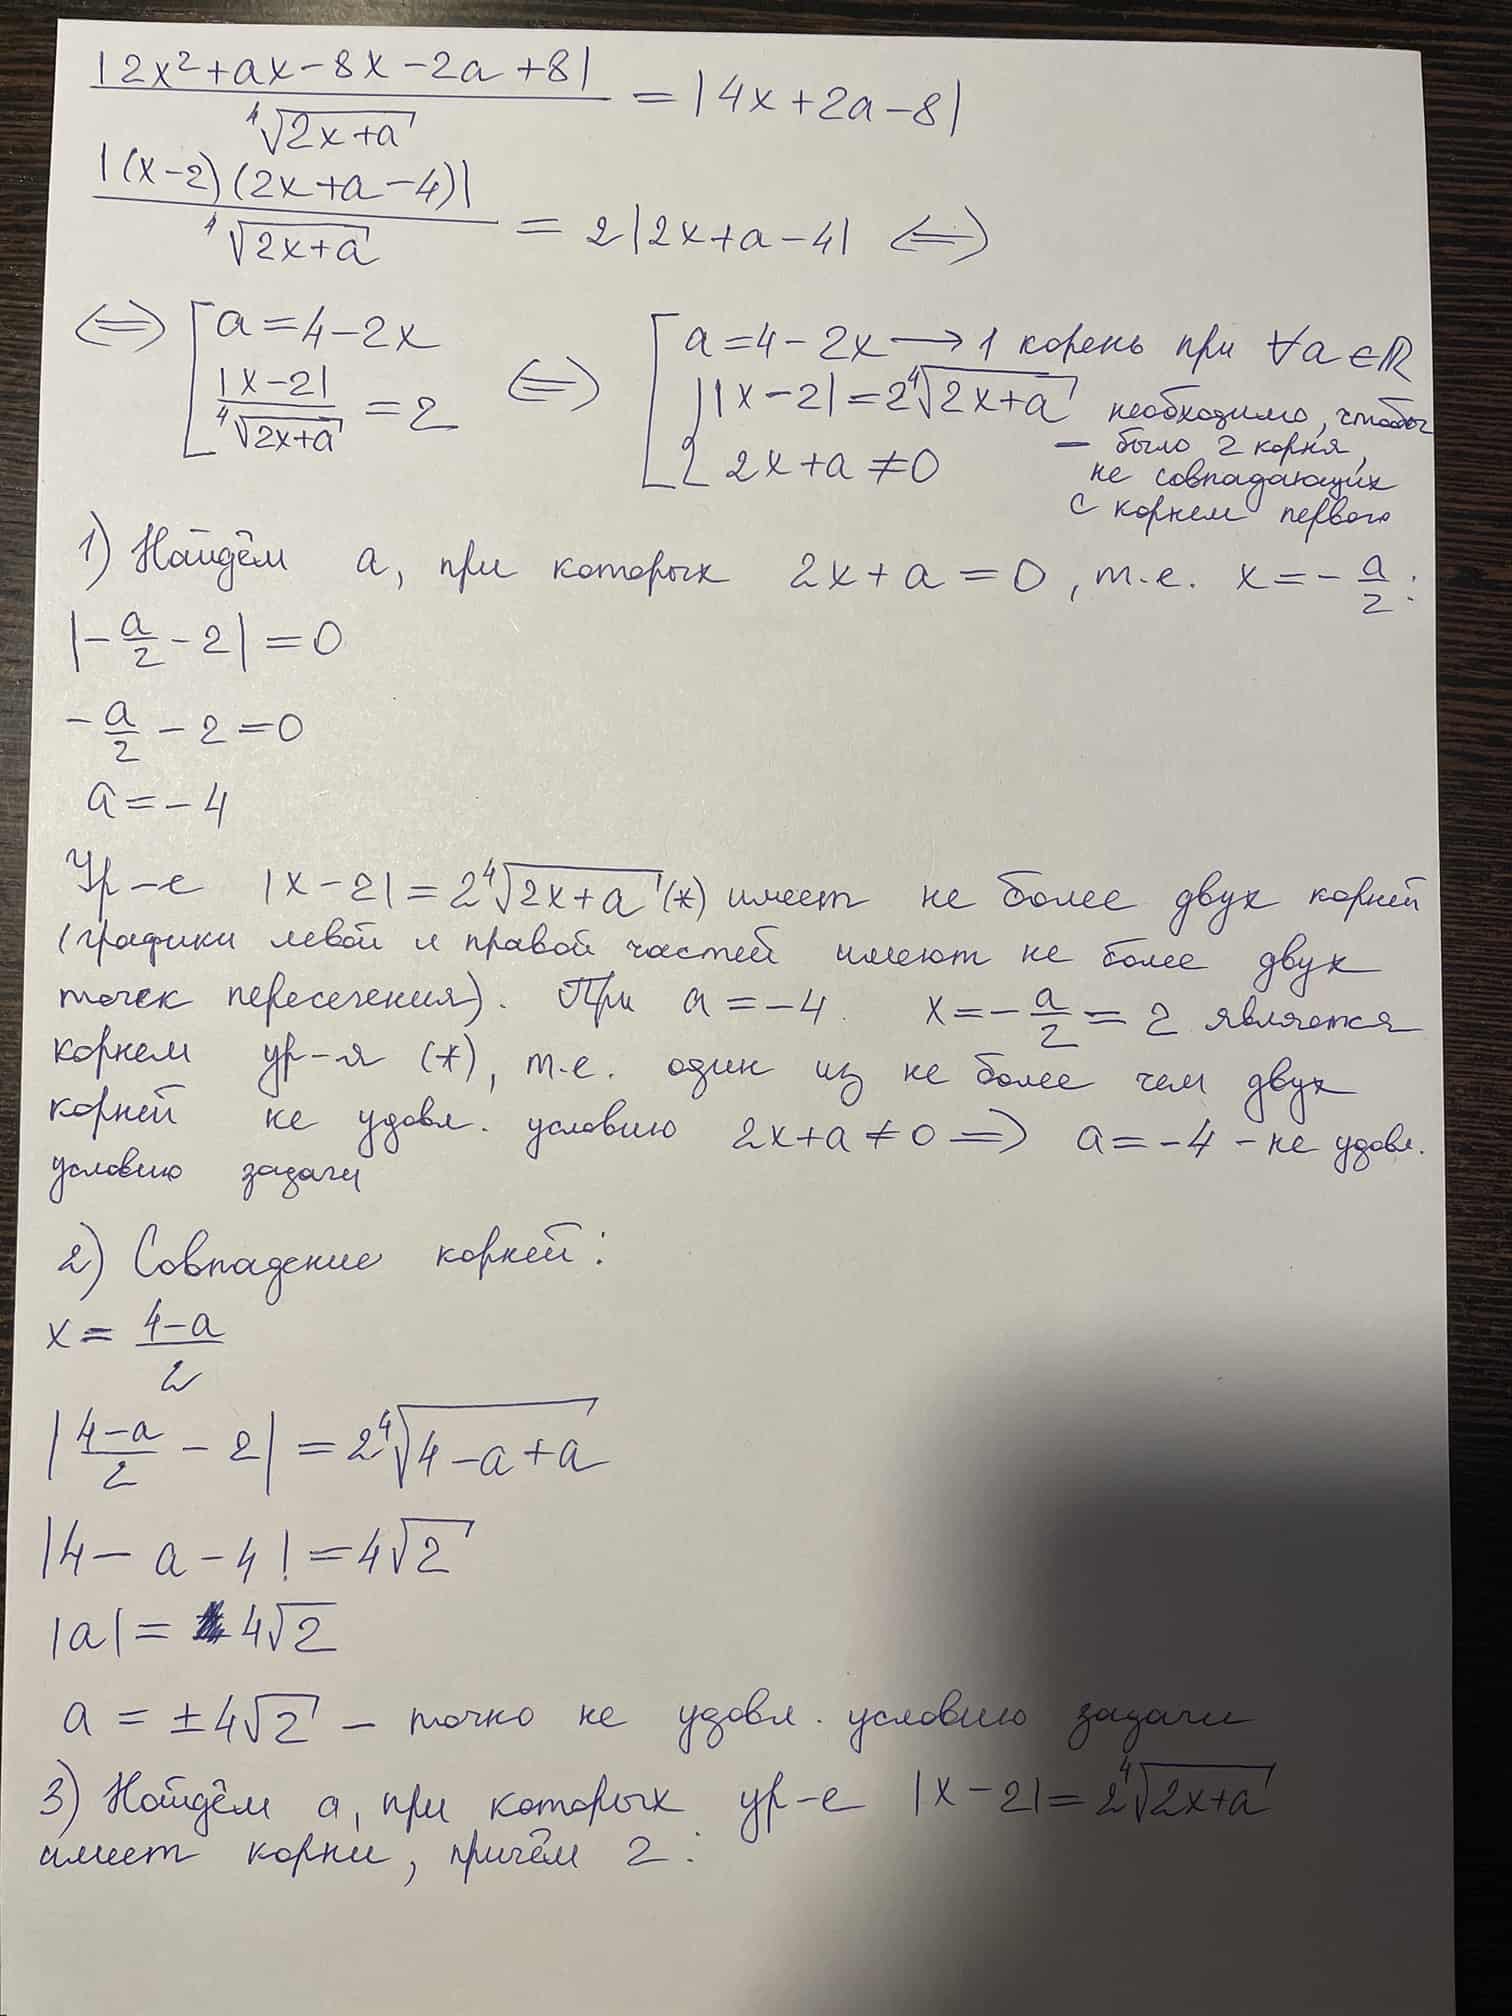 |2x²+ax−8x−2a+8| / ⁴√(2x+a) = |4x+2a−8|
|(x−2)(2x+a−4)| / ⁴√(2x+a) = 2|2x+a−4| ⇔
⇔ [ a=4−2x ; |x−2| / ⁴√(2x+a) = 2 ⇔ [ a=4−2x → 1 корень при ∀a∈ℝ
{ |x−2|=2⁴√(2x+a) ; 2x+a≠0 — необходимо, чтобы
было 2 корня,
не совпадающих
с корнем первого
1) Найдём a, при которых 2x+a=0, т.е. x=−a/2:
|−a/2−2|=0
−a/2−2=0
a=−4
Ур-е |x−2|=2⁴√(2x+a) (*) имеет не более двух корней
(графики левой и правой частей имеют не более двух
точек пересечения). При a=−4. x=−a/2=2 является
корнем ур-я (*), т.е. один из не более чем двух
корней не удовл. условию 2x+a≠0 ⇒ a=−4 – не удовл.
условию задачи
2) Совпадение корней:
x=(4−a)/2
|(4−a)/2−2|=2⁴√(4−a+a)
|4−a−4|=4√2
|a|=4√2
a=±4√2 – точно не удовл. условию задачи
3) Найдём a, при которых ур-е |x−2|=2⁴√(2x+a)
имеет корни, причём 2: